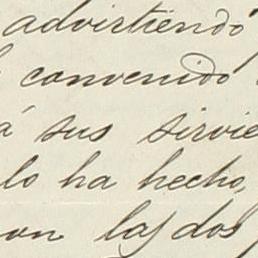 advirtiendo
convenido
á sus sirvie
lo ha hecho,
on las dos